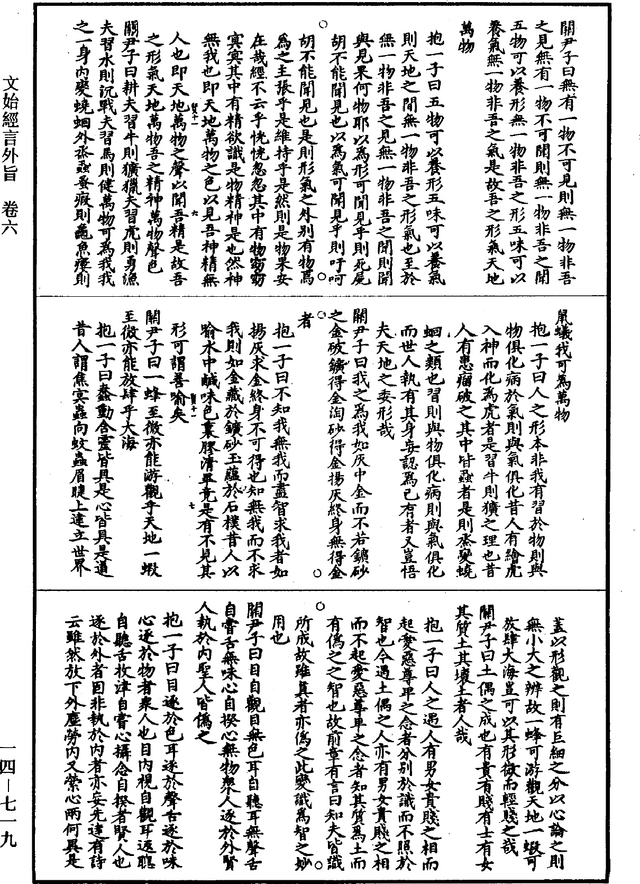 文始經言外旨 卷六
一四—七一九
關尹子曰無有一物不可見則無一物非吾
之見無有一物不可聞則無一物非吾之聞
五物可以養形無一物非吾之形五味可以
養氣無一物非吾之氣是故吾之形氣天地
萬物
抱一子曰五物可以養形五味可以養氣
則天地之間無一物非吾之形氣也至於
無一物非吾之見無一物非吾之聞則聞
與見果何物耶以為形可聞見乎則死屍
胡不能聞見也以為氣可聞見乎則吁呵
胡不能聞見也是則形氣之外別有物為
為之主張乎是維持乎是然則是物果安
在哉經不云乎恍恍惚惚其中有物窈窈
冥冥其中有精欲識是物精神是也然神
無我也即天地萬物之色以見吾神精無
人也即天地萬物之聲以聞吾精是故吾
之形氣天地萬物吾之精神萬物聲色
關尹子曰耕夫習牛則獷獵夫習虎則勇漁
夫習水則沉戰夫習馬則健萬物可為我我
之一身內變蟯蛔外烝蝨蚤瘕則龜魚瘻則
鼠蟻我可為萬物
抱一子曰人之形本非我有習於物則與
物俱化病於氣則與氣俱化昔人有繪虎
入神而化為虎者是習牛則獷之理也昔
人有患瘤破之其中皆蝨者是則烝變蟯
蛔之類也習則與物俱化病則與氣俱化
而世人執有其身妄認為己有者又豈悟
夫天地之委形哉
關尹子曰我之為我如灰中金而不若鑛砂
之金破鑛得金淘砂得金揚灰終身無得金
者
抱一子曰不知我無我而盡智求我者如
揚灰求金終身不可得也知無我而不求
我則如金藏於鑛砂玉蘊於石樸昔人以
喻水中鹹味色裏膠清畢竟是有不見其
形可謂善喻矣
關尹子曰一蜂至微亦能游觀乎天地一蝦
至微亦能放肆乎大海
抱一子曰蠢動含靈皆具是心皆具是道
昔人謂焦冥蟲向蚊蟲眉睫上建立世界
蓋以形觀之則有巨細之分以心論之則
無小大之辨故一蜂可游觀天地一蝦可
放肆大海豈可以其形微而輕賤之哉
關尹子曰土偶之成也有貴有賤有士有女
其質土其壞土者人哉
抱一子曰人之遇人有男女貴賤之相而
起愛惡尊卑之念者分別於識而不照於
智也今遇土偶之人亦有男女貴賤之相
而不起愛惡尊卑之念者知其質為土而
有偽之之智也故前輩有言曰知夫皆識
所成故雖真者亦偽之此變識為智之妙
用也
關尹子曰目自觀目無色耳自聽耳無聲舌
自嘗舌無味心自揆心無物眾人逐於外賢
人執於內聖人皆偽之
抱一子曰目逐於色耳逐於聲舌逐於味
心逐於物者眾人也目內視自觀耳返聽
自聽舌收津自嘗心攝念自揆者賢人也
逐於外者固非執於內者亦妄先達有詩
云雖然放下外塵勞內又縈心兩何異是